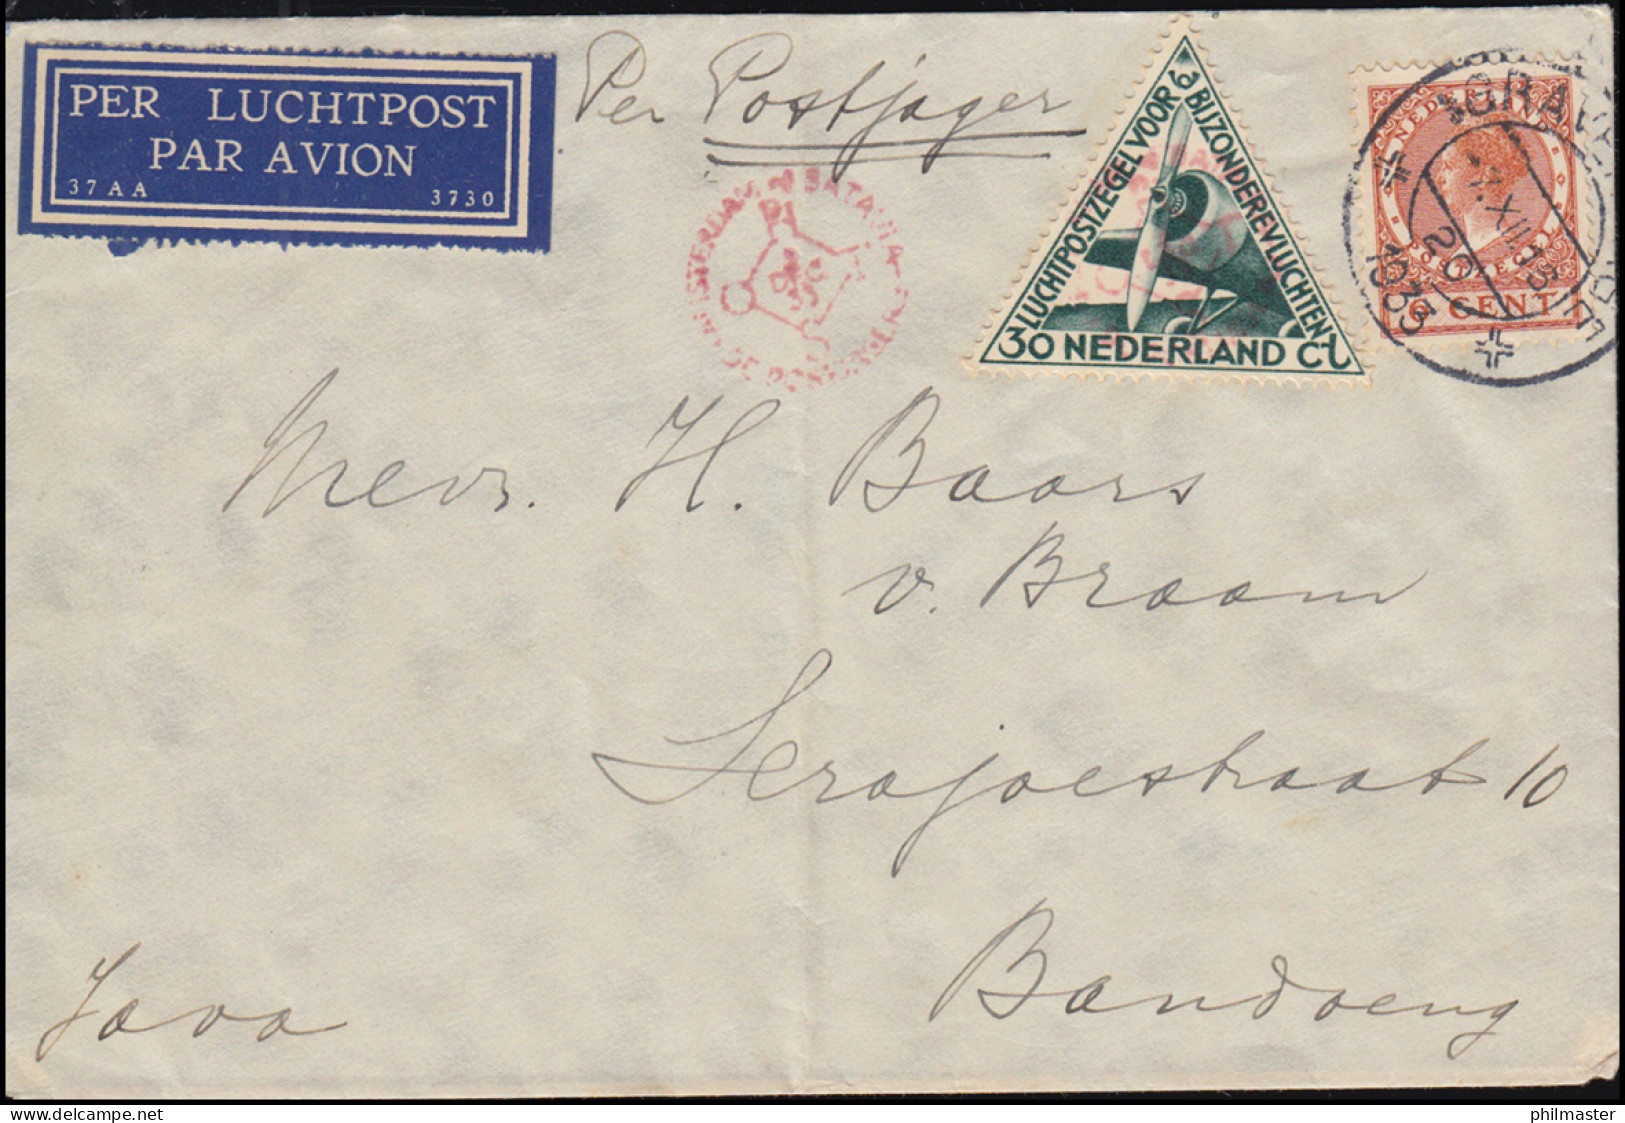 PER LUCHTPOST
PAR AVION
37 A A 3730
Per Postjager
AMSTERDAM BATAVIA
DEC
LUCHTPOSTZEGEL VOOR BIJZONDERE VLUCHTEN
30 NEDERLAND CT
NEDERLAND
POSTZEGEL
6 CENT
17.XII.33
1933
Mevr. H. Baars
v. Braam
Serajoestraat 10
Bandoeng
Java
https://www.delcampe.net/
philmaster